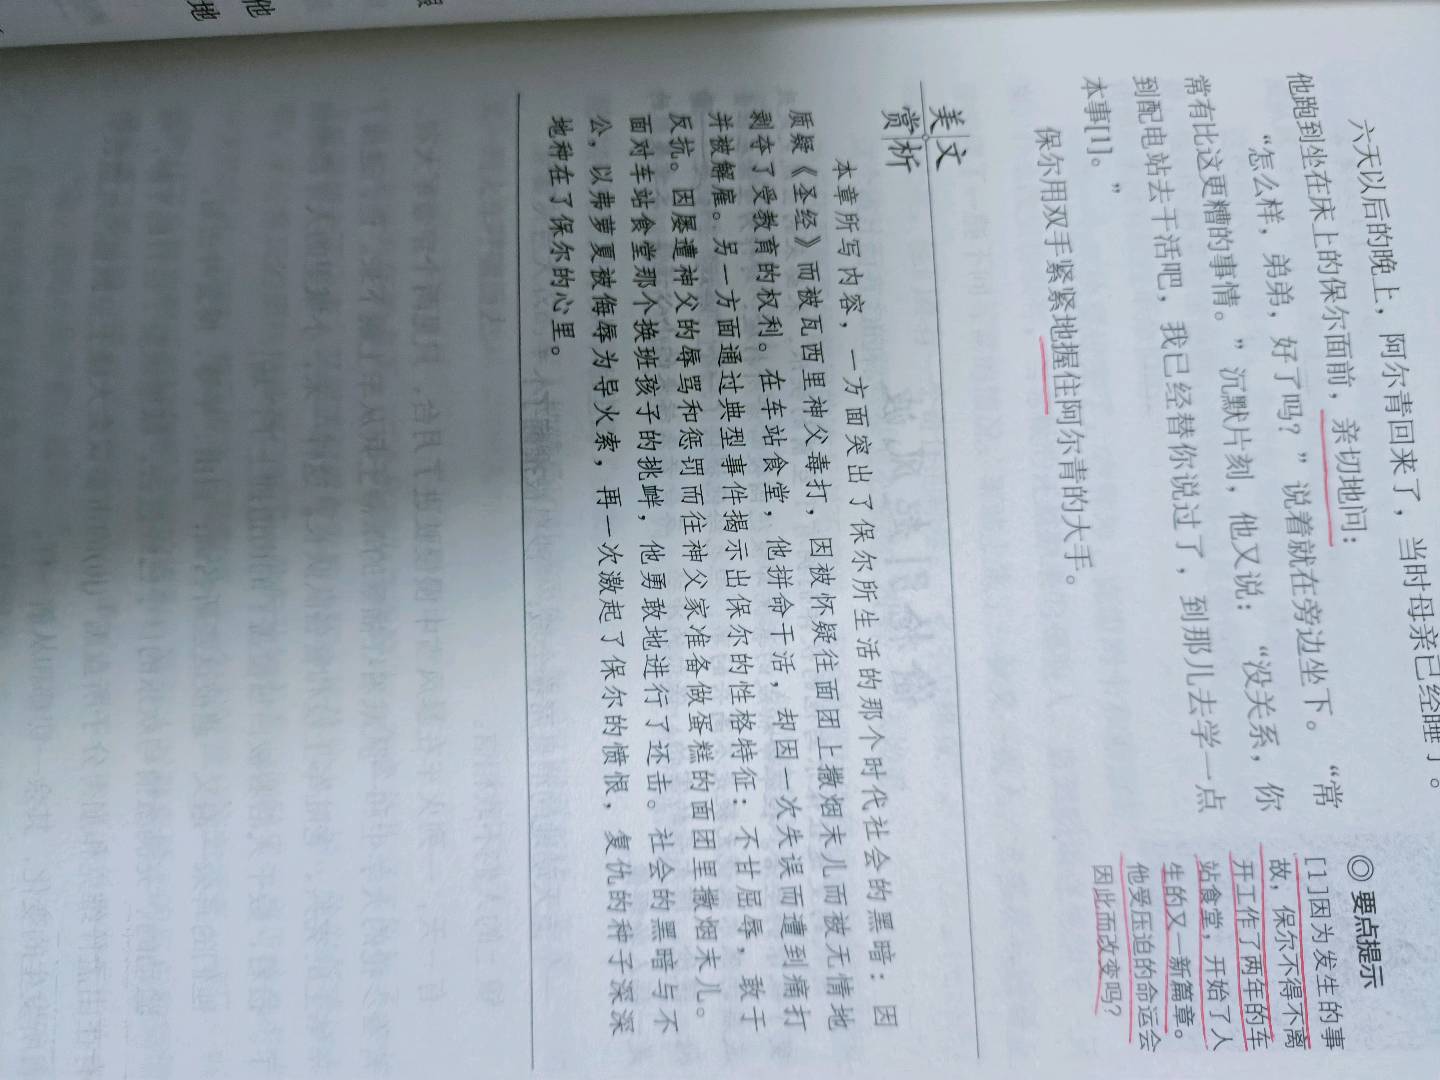 六天以后的晚上，阿尔青回来了，当时母亲已经睡了。
他跑到坐在床上的保尔面前，亲切地问：
“怎么样，弟弟，好了吗？”说着就在旁边坐下。“常
常有比这更糟的事情。”沉默片刻，他又说：“没关系，你
到配电站去干活吧，我已经替你说过了，到那儿去学一点
本事[1]。”
保尔用双手紧紧地握住阿尔青的大手。
◎要点提示
[1]因为发生的事
故，保尔不得不离
开工作了两年的车
站食堂，开始了人
生的又一新篇章。
他受压迫的命运会
因此而改变吗？
美文
赏析
本章所写内容，一方面突出了保尔所生活的那个时代社会的黑暗：因
质疑《圣经》而被瓦西里神父毒打，因被怀疑往面团上撒烟末儿而被无情地
剥夺了受教育的权利。在车站食堂，他拼命干活，却因一次失误而遭到痛打
并被解雇。另一方面通过典型事件揭示出保尔的性格特征：不甘屈辱，敢于
反抗。因屡遭神父的辱骂和惩罚而往神父家准备做蛋糕的面团里撒烟末儿。
面对车站食堂那个换班孩子的挑衅，他勇敢地进行了还击。社会的黑暗与不
公，以弗萝夏被侮辱为导火索，再一次激起了保尔的愤恨，复仇的种子深深
地种在了保尔的心里。
他
地